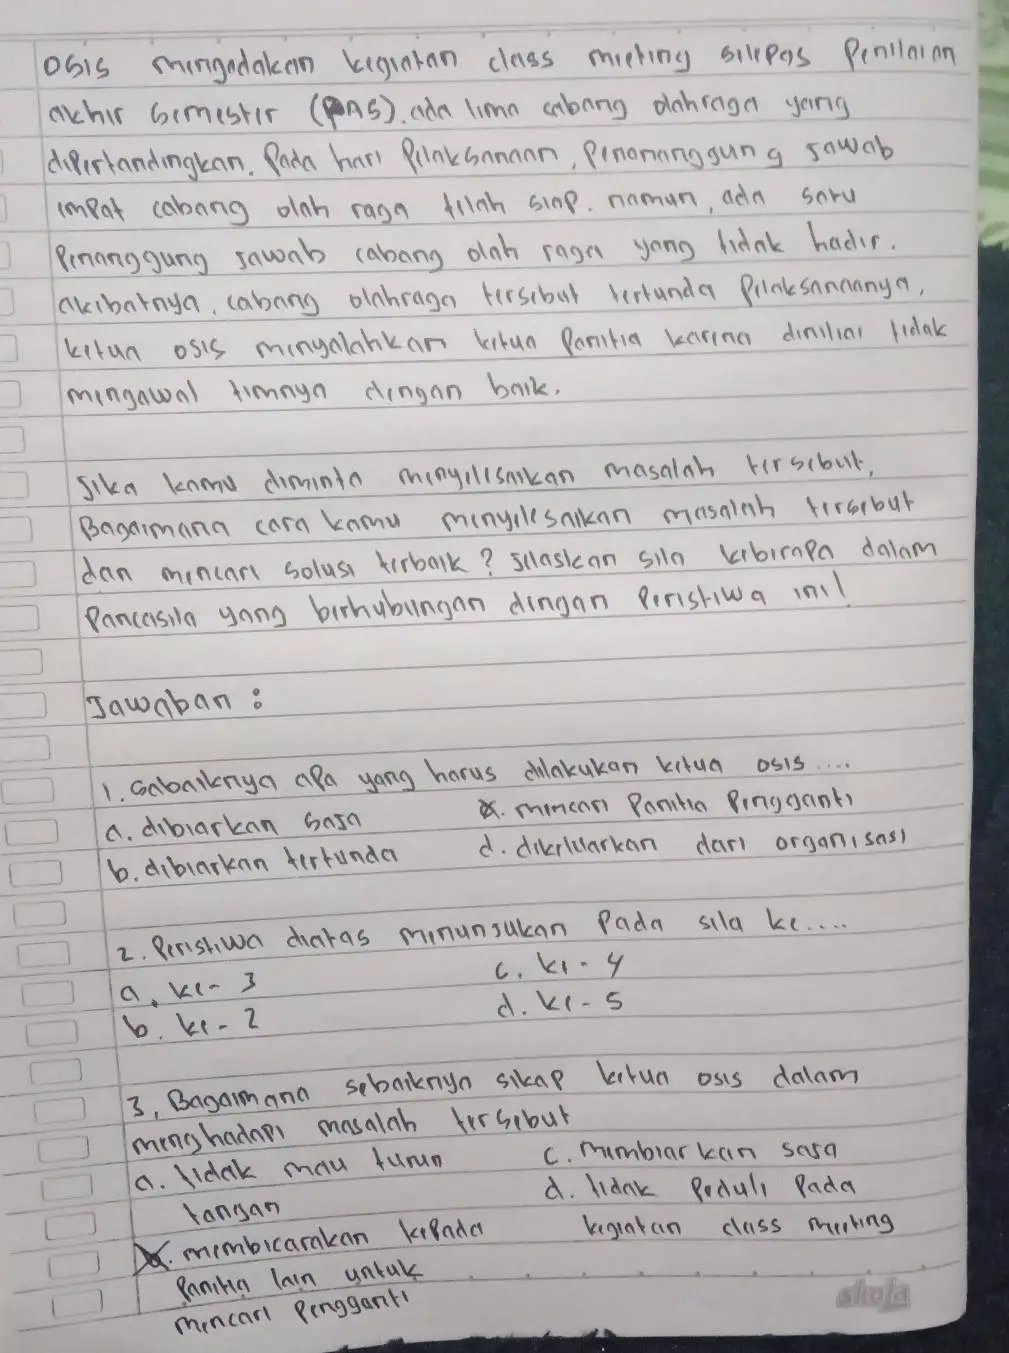 OSIS mengadakan kegiatan class meeting selepas Penilaian
akhir semester (PAS). ada lima cabang olahraga yang
dipertandingkan. Pada hari Pelaksanaan, Penananggung jawab
empat cabang olah raga telah siap. namun, ada satu
Penanggung jawab cabang olah raga yang tidak hadir.
akibatnya, cabang olahraga tersebut tertunda Pelaksanaanya,
ketua OSIS menyalahkan ketua Panitia karena dinilai tidak
mengawal timnya dengan baik.
Jika kamu diminta menyelesaikan masalah tersebut,
Bagaimana cara kamu menyelesaikan masalah tersebut
dan mencari solusi terbaik? Jelaskan sila keberapa dalam
Pancasila yang berhubungan dengan Peristiwa ini!
Jawaban :
1. Sebaiknya apa yang harus dilakukan ketua OSIS ....
a. dibiarkan saja c. mencari Panitia Pengganti
b. dibiarkan tertunda d. dikeluarkan dari organisasi
2. Peristiwa diatas menunjukan Pada sila ke....
a. ke- 3 c. ke - 4
b. ke - 2 d. ke - 5
3, Bagaimana sebaiknya sikap ketua OSIS dalam
menghadapi masalah tersebut
a. tidak mau turun c. membiarkan saja
tangan d. tidak Peduli Pada
b. membicarakan kepada kegiatan class meeting
Panitia lain untuk
mencari Pengganti
skola